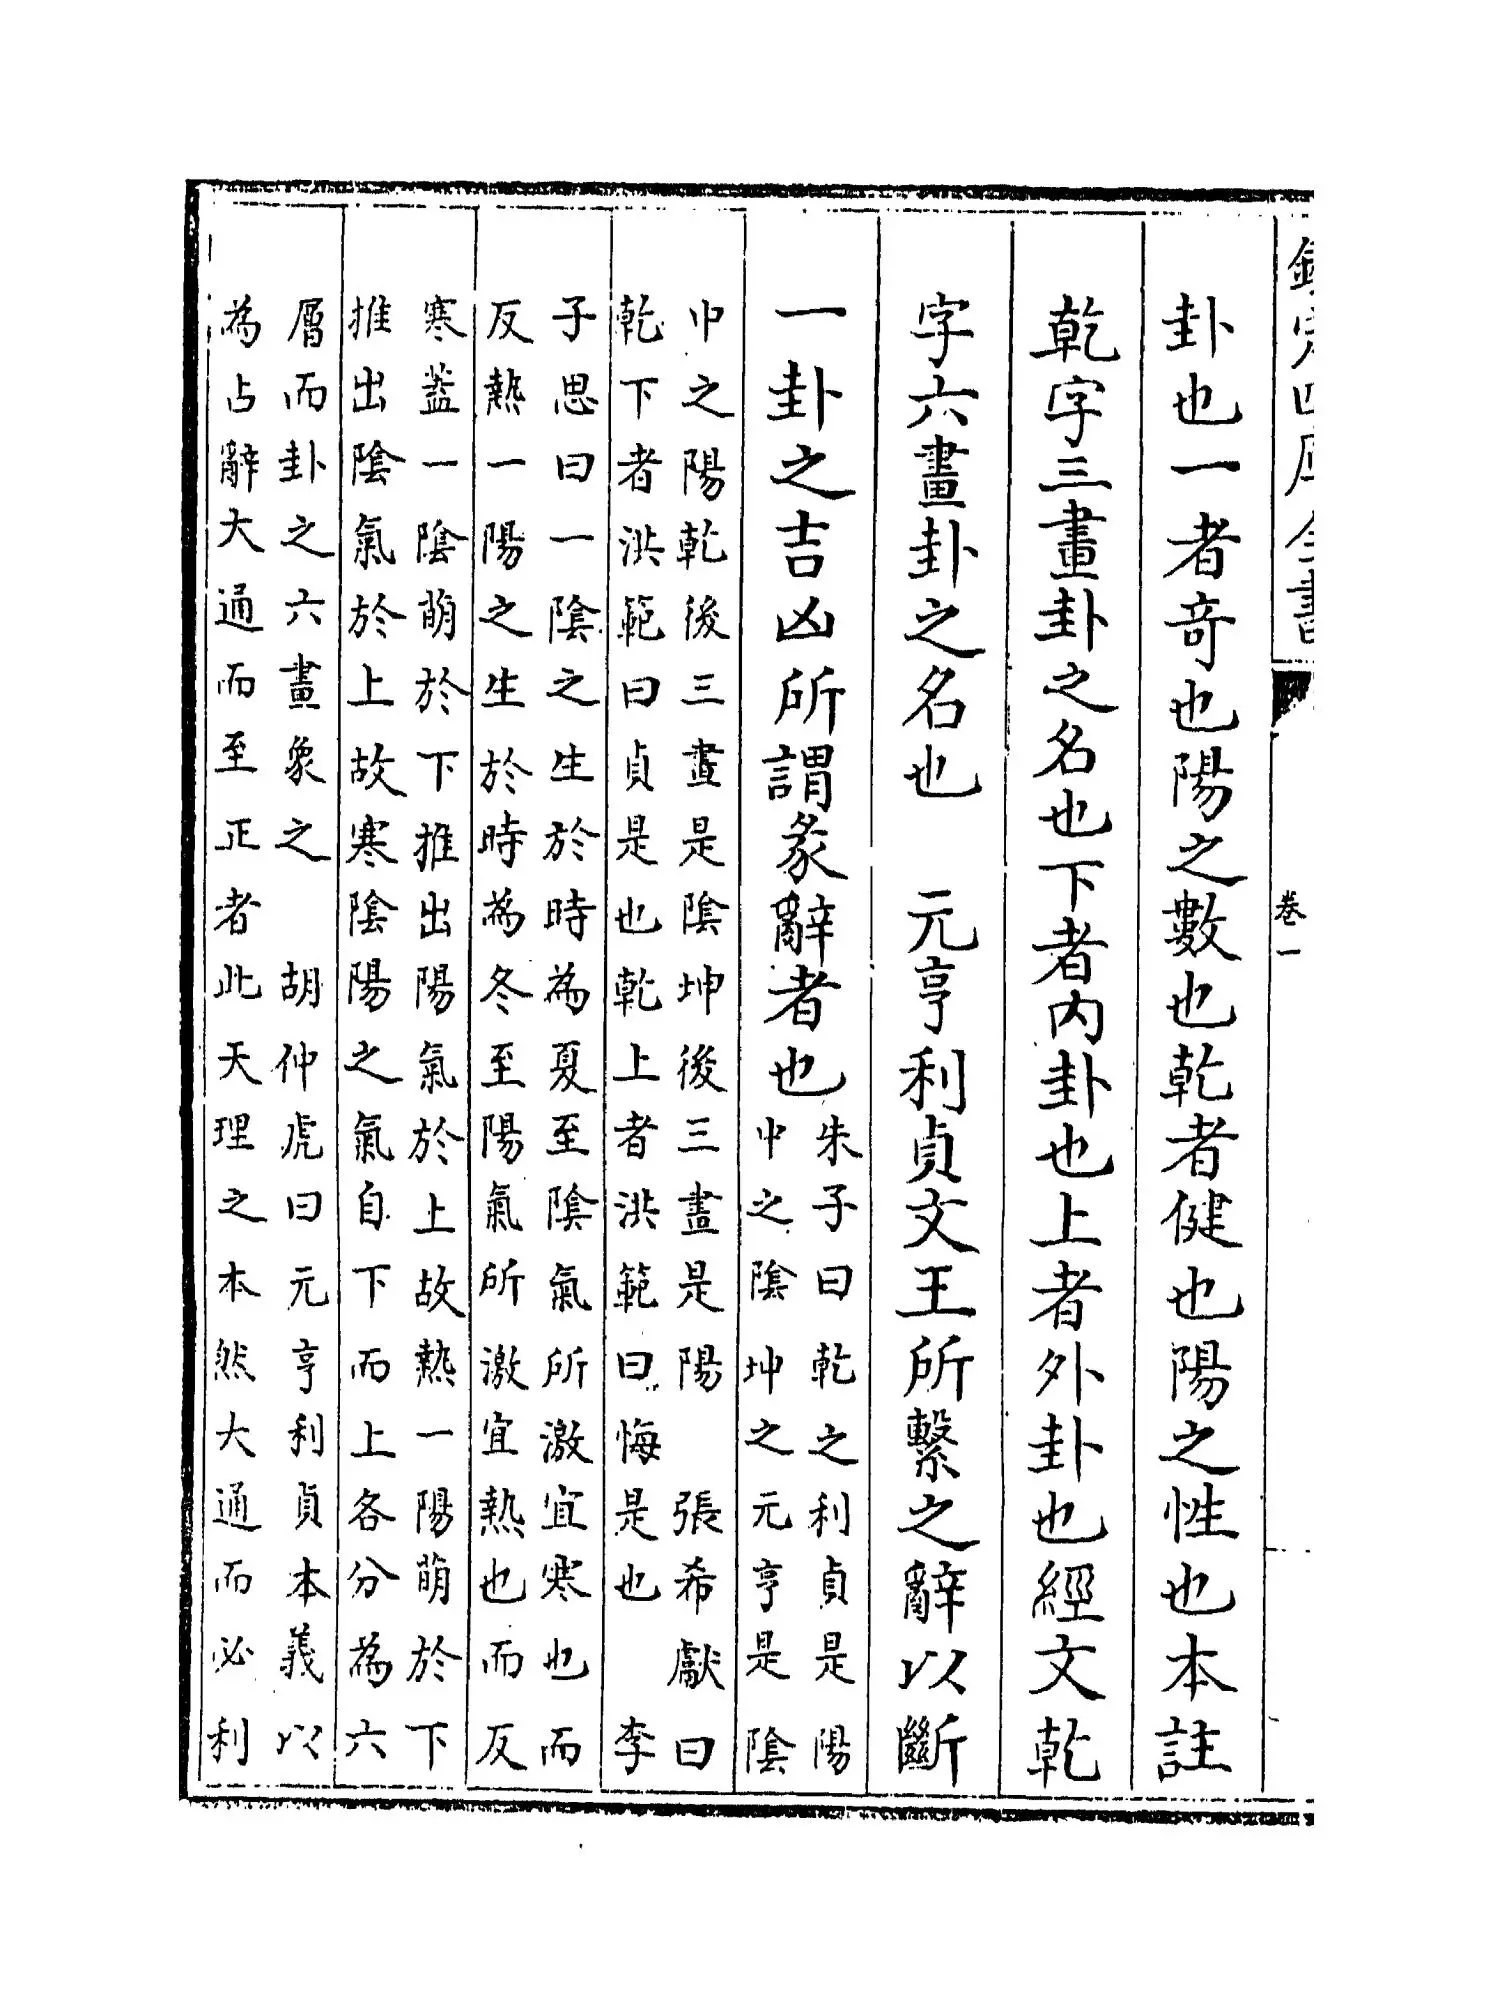 欽定四庫全書
卷一
卦也一者奇也陽之數也乾者健也陽之性也本註
乾字三畫卦之名也下者内卦也上者外卦也經文乾
字六畫卦之名也　元亨利貞文王所繫之辭以斷
一卦之吉凶所謂彖辭者也
朱子曰乾之利貞是陽
中之陰坤之元亨是陰
中之陽乾後三畫是陰坤後三畫是陽　張希獻曰
乾下者洪範曰貞是也乾上者洪範曰悔是也　李
子思曰一陰之生於時為夏至陰氣所激宜寒也而
反熱一陽之生於時為冬至陽氣所激宜熱也而反
寒蓋一陰萌於下推出陽氣於上故熱一陽萌於下
推出陰氣於上故寒陰陽之氣自下而上各分為六
層而卦之六畫象之　胡仲虎曰元亨利貞本義以
為占辭大通而至正者此天理之本然大通而必利